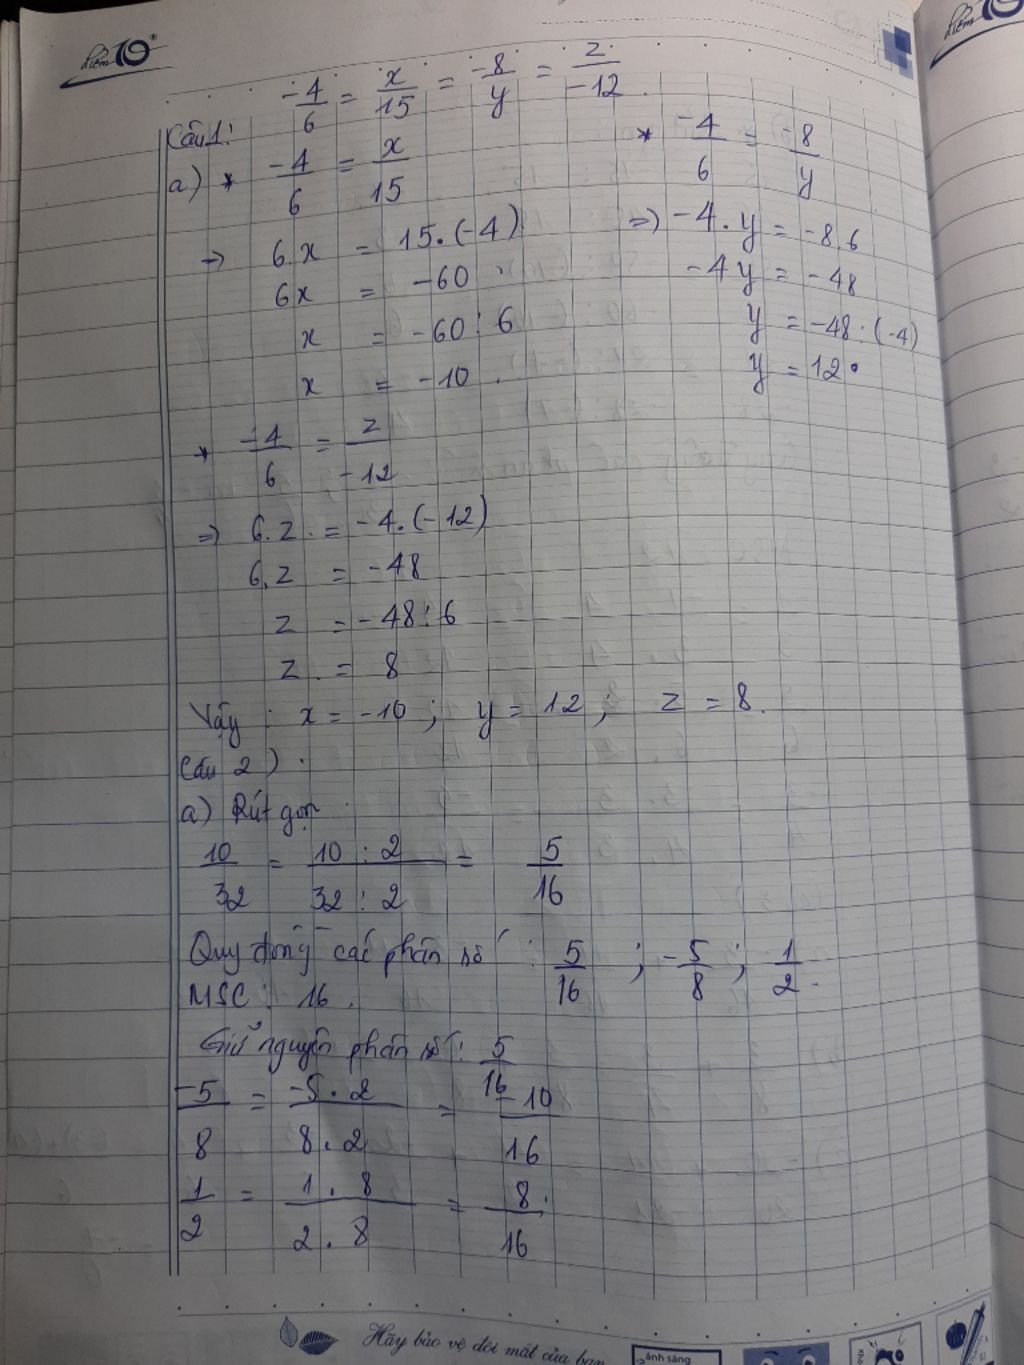 điểm 10
điểm 10
-4/6 = x/15 = -8/y = z/-12.
Câu 1:
a) * -4/6 = x/15
→ 6.x = 15.(-4)
6x = -60
x = -60 : 6
x = -10.
* -4/6 = -8/y
=> -4.y = -8.6
-4y = -48
y = -48 : (-4)
y = 12.
* -4/6 = z/-12
=> 6.z = -4.(-12)
6.z = -48
z = -48 : 6
z = 8
Vậy : x = -10 ; y = 12 ; z = 8.
Câu 2)
a) Rút gọn
10/32 = 10 : 2/32 : 2 = 5/16
Quy đồng các phân số : 5/16 ; -5/8 ; 1/2.
MSC : 16.
Giữ nguyên phân số : 5/16
-5/8 = -5.2/8.2 = -10/16
1/2 = 1.8/2.8 = 8/16
Hãy bảo vệ đôi mắt của bạn
ánh sáng